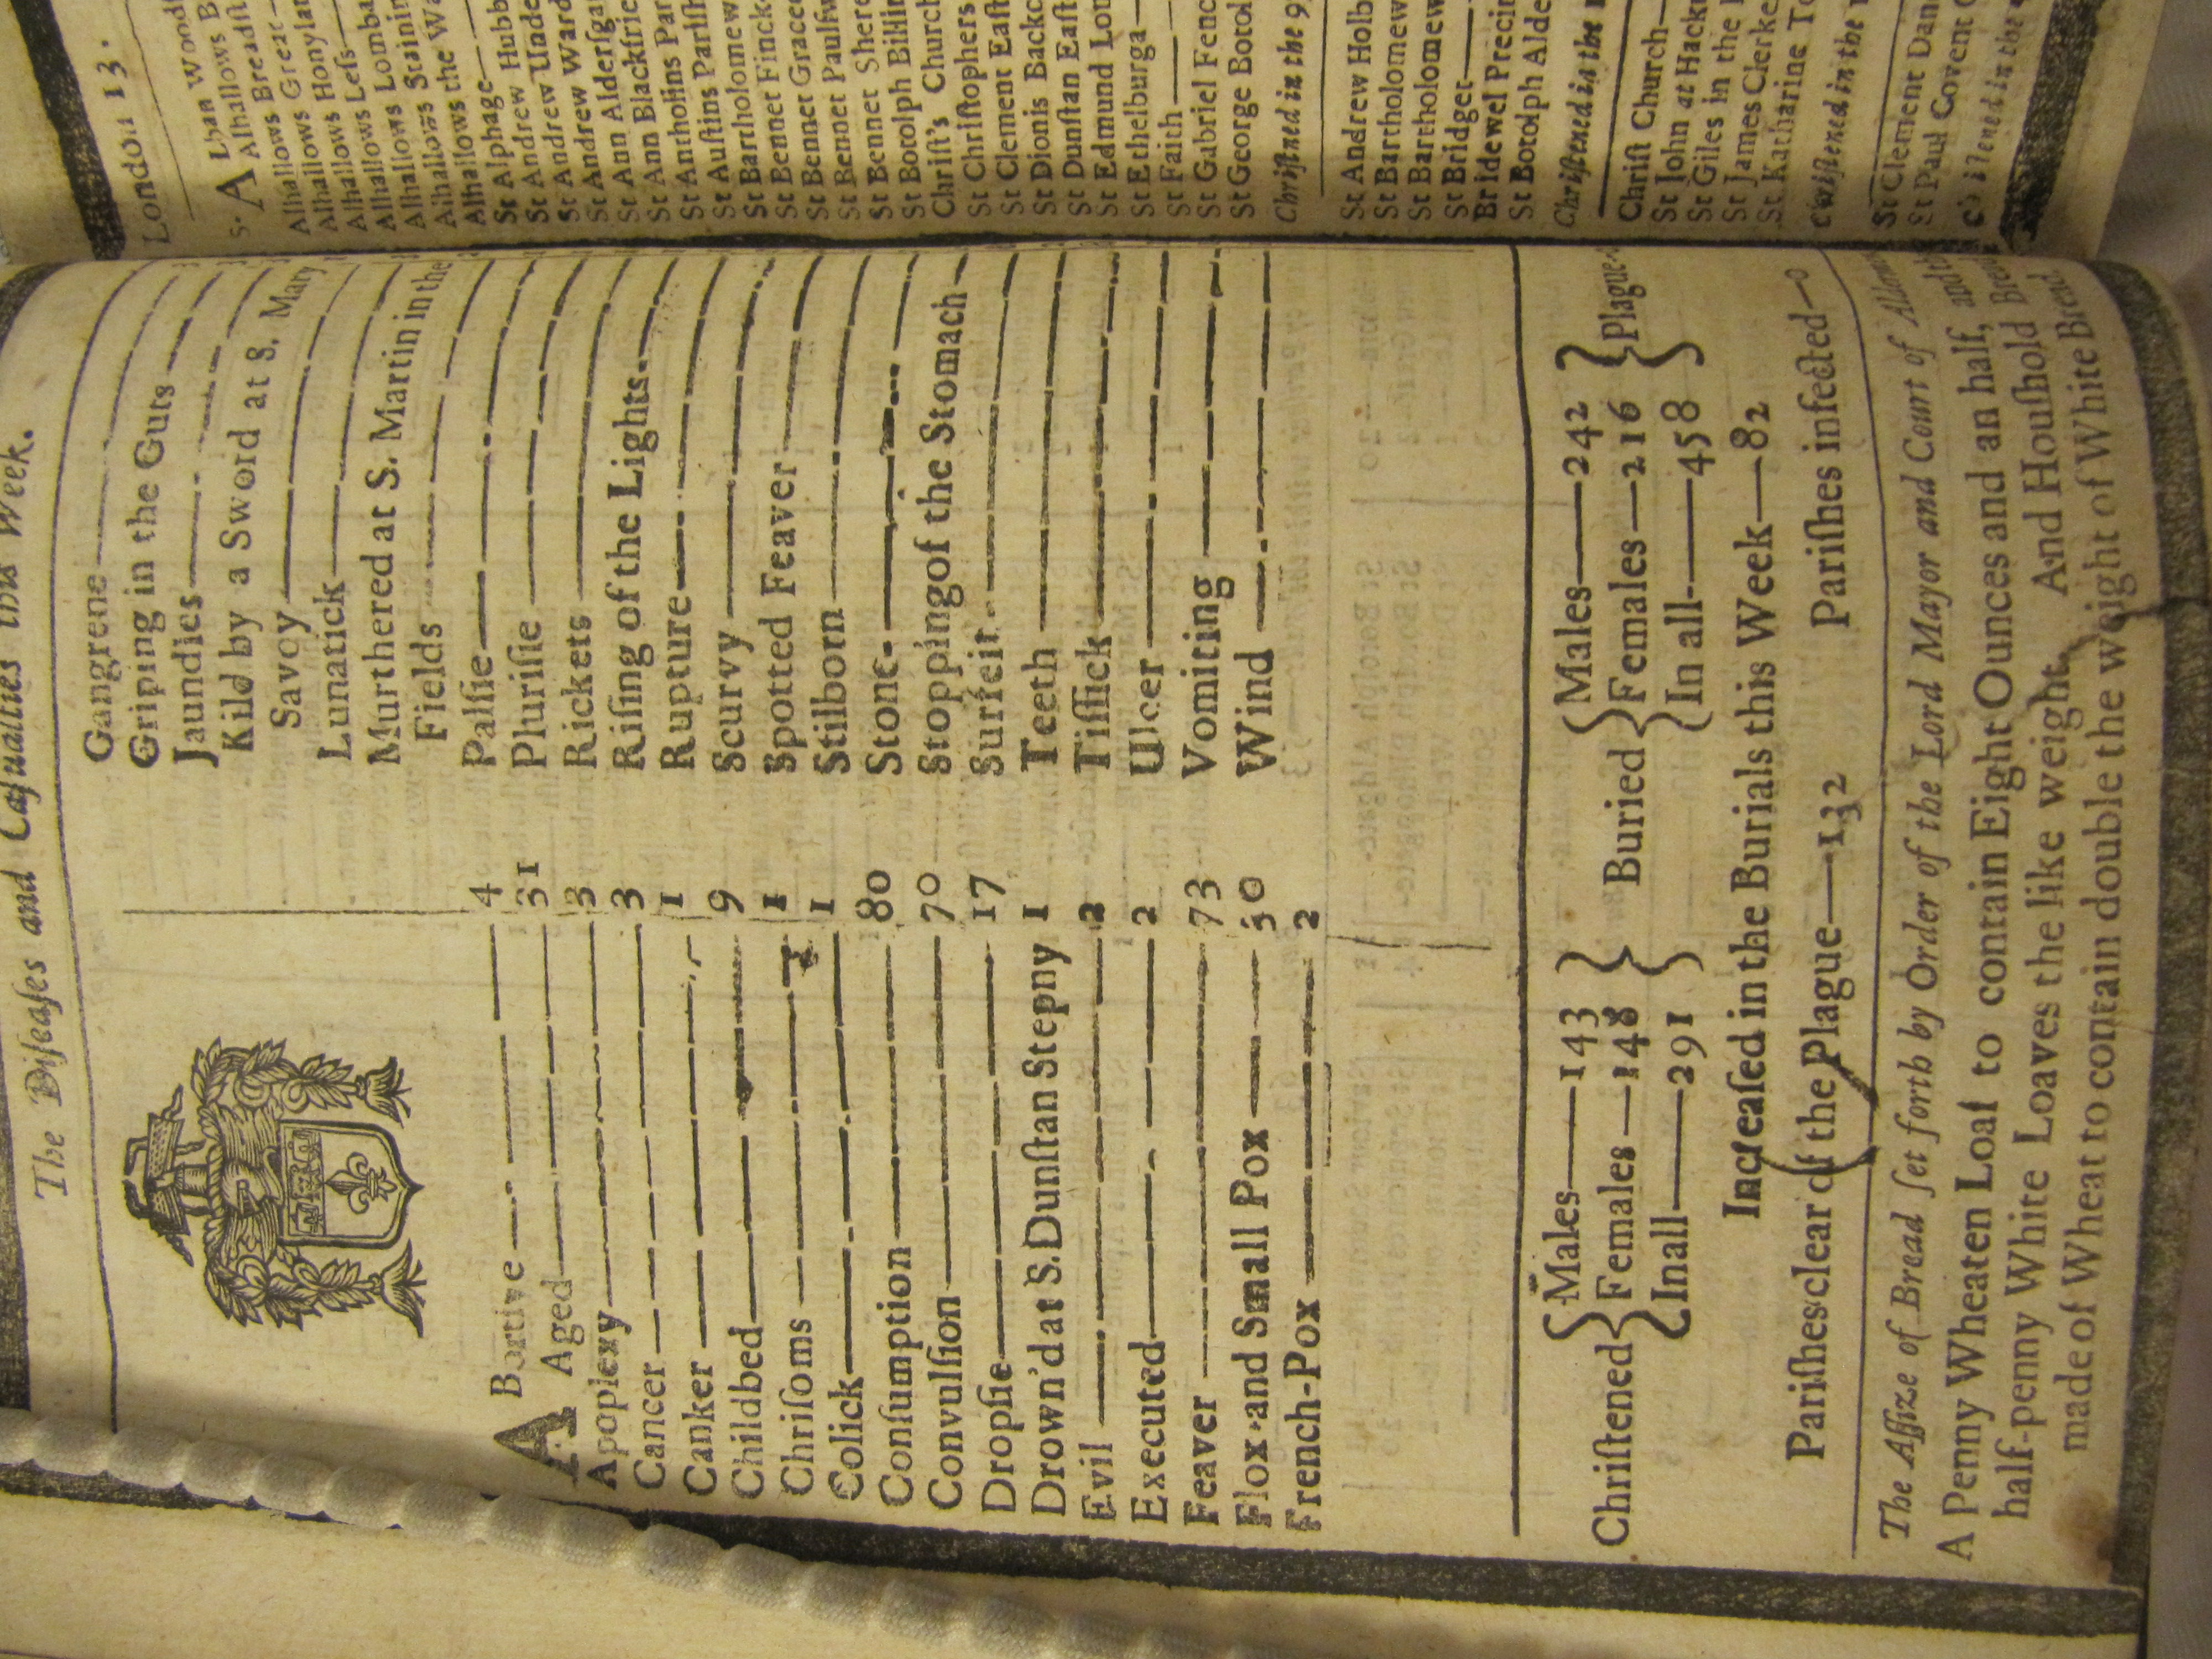 The Diſeaſes and Caſualties this Week.
ABortive — 4
Aged — 31
Apoplexy — 3
Cancer — 3
Canker — 1
Childbed — 9
Chriſoms — 1
Colick — 1
Conſumption — 80
Convulſion — 70
Dropſie — 17
Drown'd at S. Dunſtan Stepny 1
Evil — 2
Executed — 2
Feaver — 73
Flox and Small Pox — 50
French-Pox — 2
Gangrene —
Griping in the Guts —
Jaundies —
Kild by a Sword at S. Mary
Savoy —
Lunatick —
Murthered at S. Martin in the
Fields —
Palſie —
Pluriſie —
Rickets —
Riſing of the Lights —
Rupture —
Scurvy —
Spotted Feaver —
Stilborn —
Stone —
Stopping of the Stomach —
Surfeit —
Teeth —
Tiſſick —
Ulcer —
Vomiting —
Wind —
Chriſtened { Males — 143
Females — 148
In all — 291 }
Buried { Males — 242
Females — 216
In all — 458 } Plague
Increaſed in the Burials this Week — 82
Pariſhes clear of the Plague — 132 Pariſhes infected — 0
The Aſſize of Bread ſet forth by Order of the Lord Mayor and Court of
A Penny Wheaten Loaf to contain Eight Ounces and an half, and
half-penny White Loaves the like weight. And Houſhold
made of Wheat to contain double the weight of White Bread
London 13.
S. ALban Woodſ
Alhallows B
Alhallows Breadſt
Alhallows Great
Alhallows Honylan
Alhallows Leſs
Alhallows Lomba
Alhallows Stainin
Alhallows the Wa
St Alphage
St Andrew Hubb
St Andrew Unde
St Andrew Ward
St Ann Alderſgat
St Ann Blackfrie
St Antholins Par
St Auſtins Pariſh
St Bartholomew
St Bennet Finck
St Bennet Grace
St Bennet Paulſw
St Bennet Shere
St Botolph Billin
Chriſt's Church
St Chriſtophers
St Clement Eaſt
St Dionis Backc
St Dunſtan Eaſt
St Edmund Lo
St Ethelburga
St Faith
St Gabriel Fenc
St George Botol
Chriſtned in the 97
St Andrew Holb
St Bartholomew
St Bartholomew
St Bridget
Bridewel Precin
St Botolph Alde
Chriſtened in the
Chriſt Church
St John at Hackn
St Giles in the
St James Clerke
St Katharine To
Chriſtened in the
St Clement Dan
St Paul Covent
Chriſtened in the